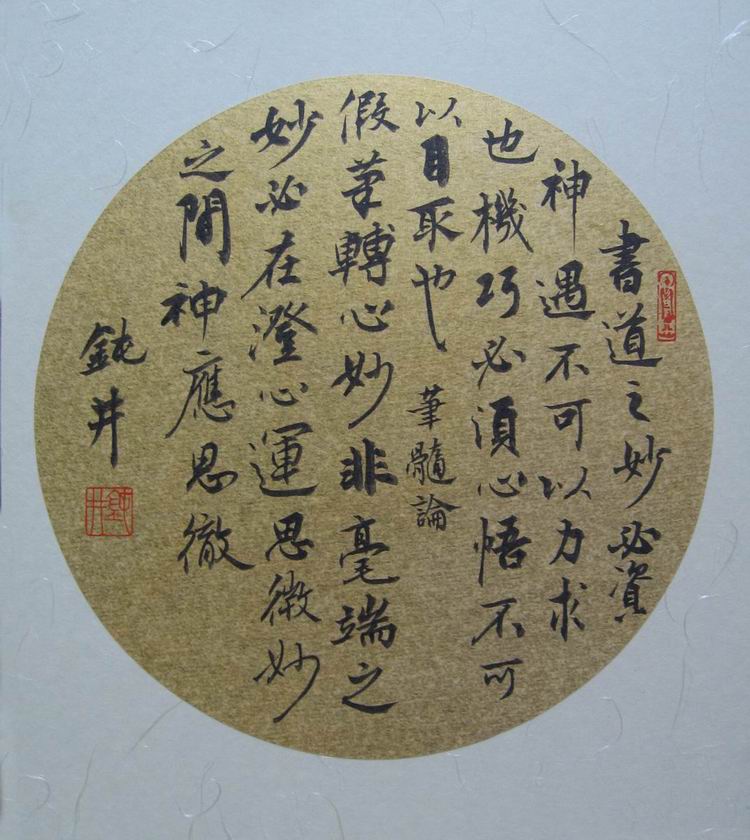 書道之妙必資
神遇不可以力求
也機巧必須心悟不可
以目取也
筆髓論
假筆轉心妙非毫端之
妙必在澄心運思微妙
之間神應思徹
鈍井
鈍井